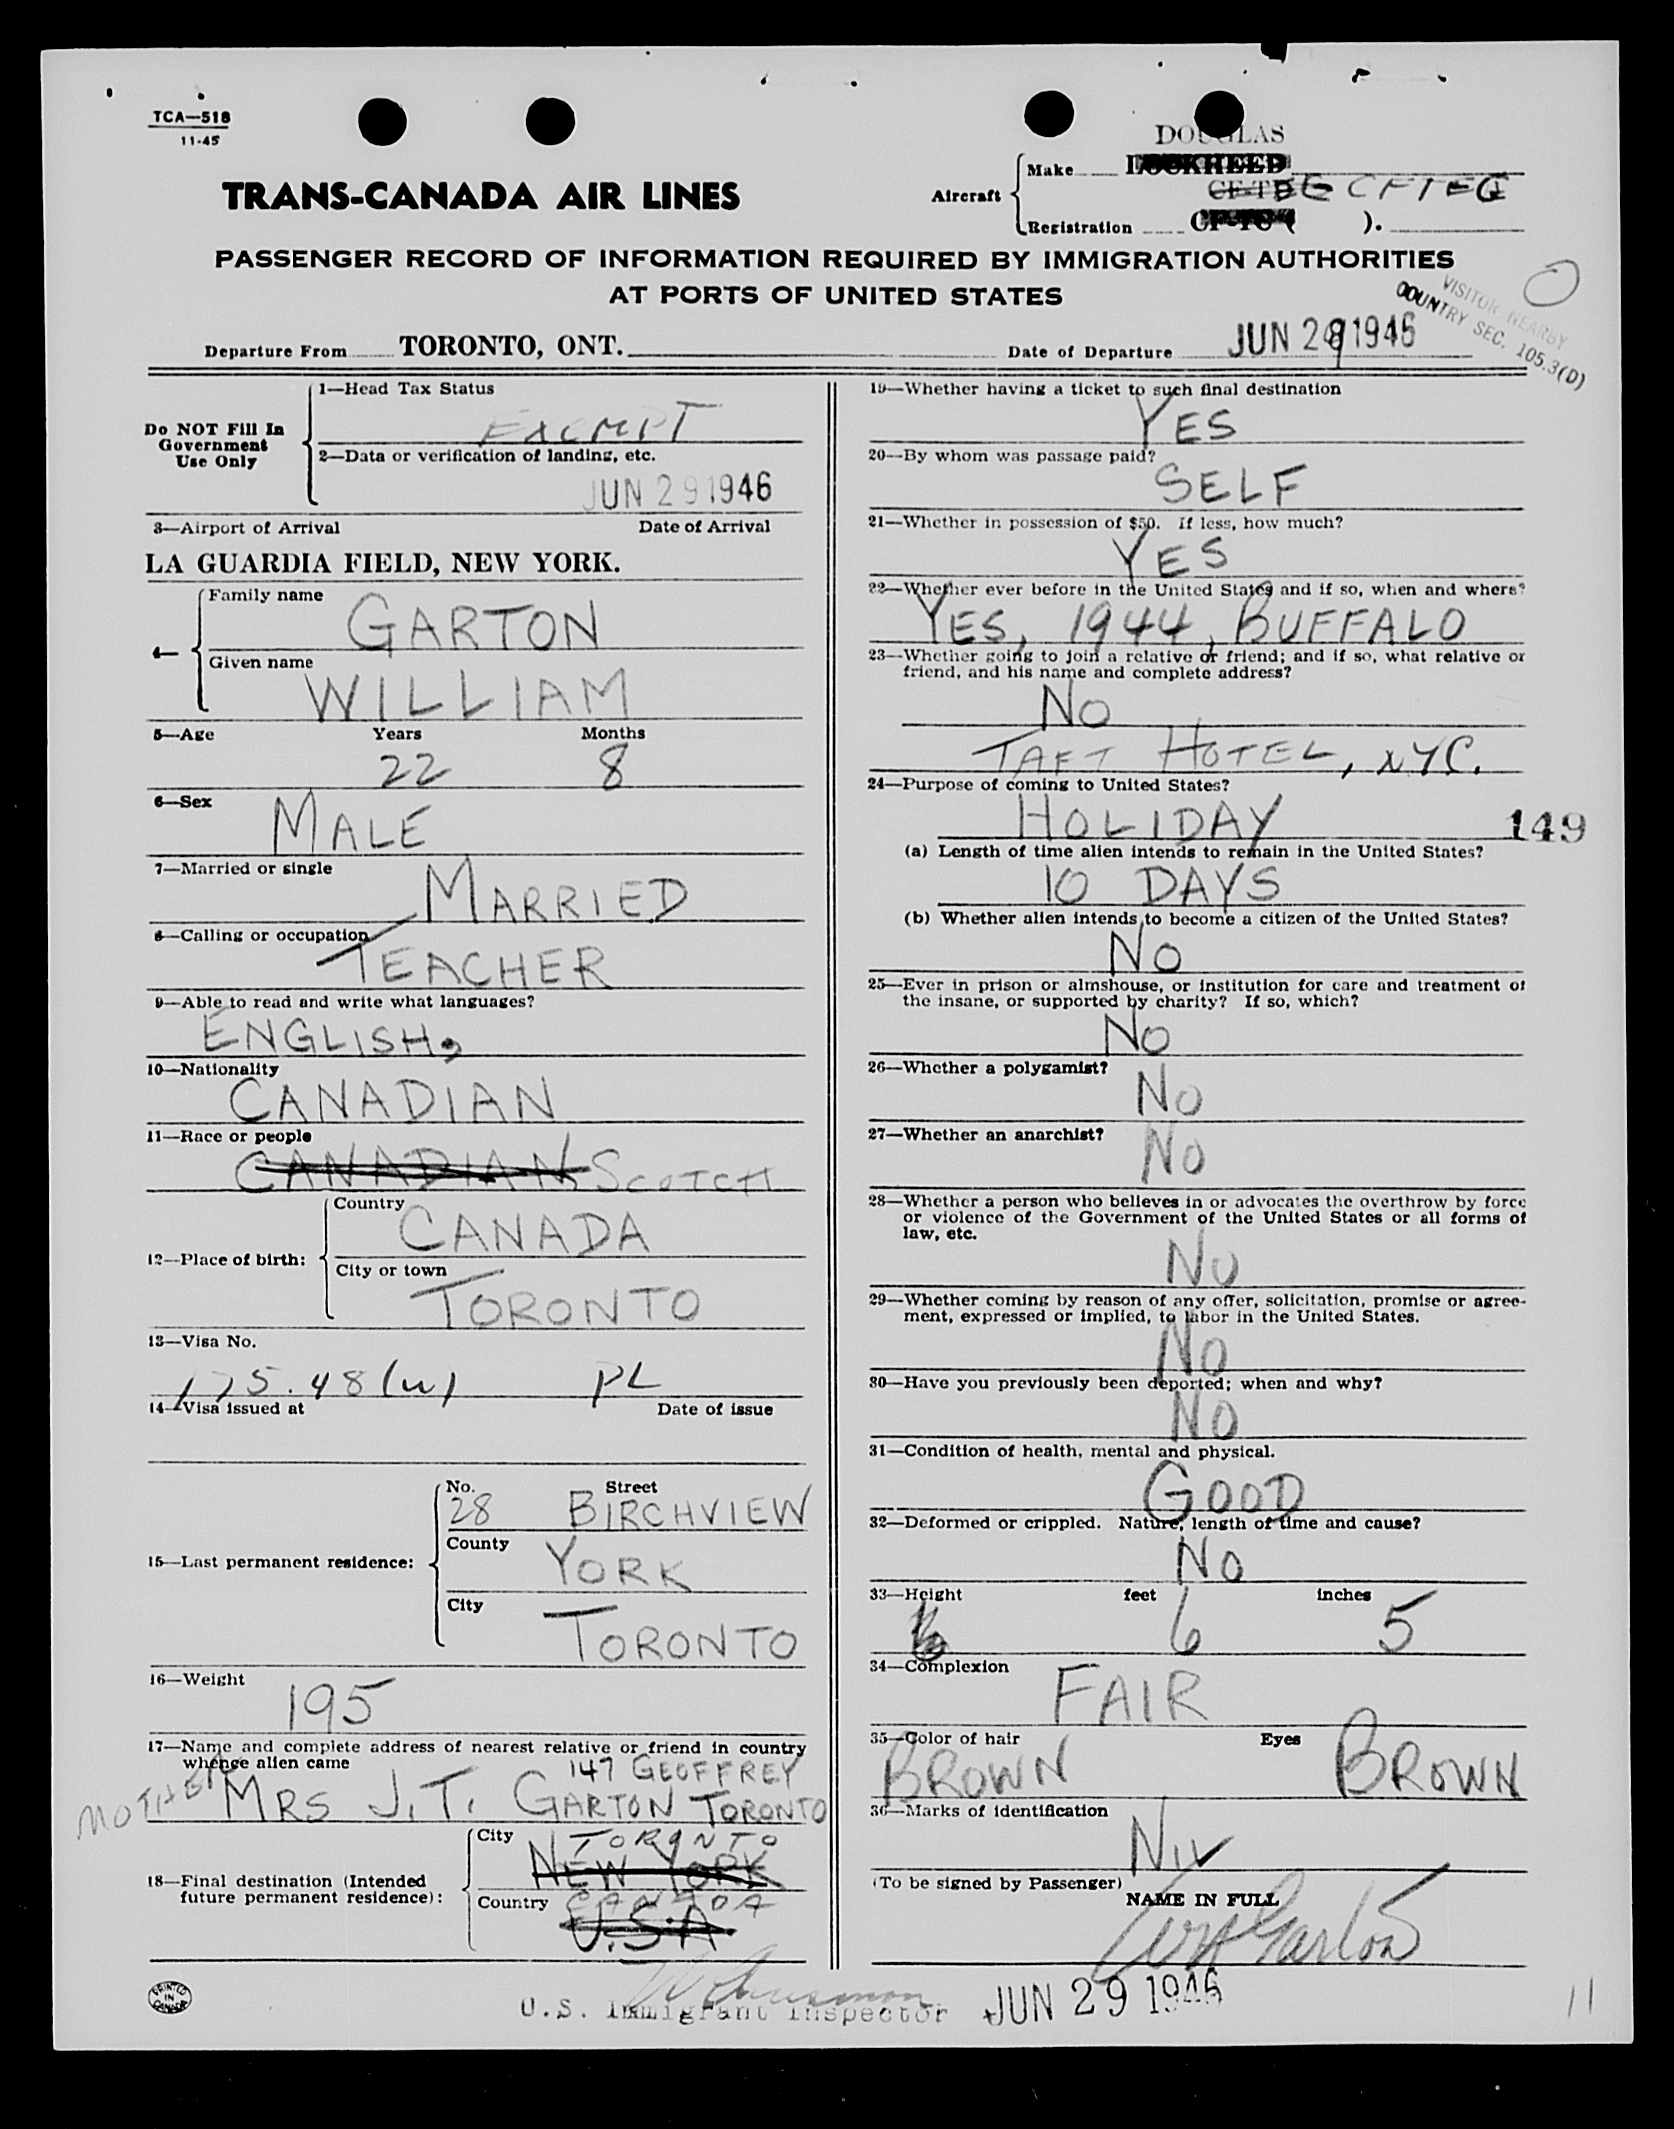 TCA—518
11-45
DOUGLAS
TRANS-CANADA AIR LINES
Aircraft
Make LOCKHEED
CF-T
CFTEG
Registration CF-TC ( ).
PASSENGER RECORD OF INFORMATION REQUIRED BY IMMIGRATION AUTHORITIES
AT PORTS OF UNITED STATES
VISITOR NEARBY
COUNTRY SEC. 105.3(D)
Departure From TORONTO, ONT.
Date of Departure JUN 29 1946
Do NOT Fill In
Government
Use Only
1—Head Tax Status
EXEMPT
2—Data or verification of landing, etc.
JUN 29 1946
3—Airport of Arrival Date of Arrival
LA GUARDIA FIELD, NEW YORK.
4—
Family name
GARTON
Given name
WILLIAM
5—Age Years Months
22 8
6—Sex
MALE
7—Married or single
MARRIED
8—Calling or occupation
TEACHER
9—Able to read and write what languages?
ENGLISH,
10—Nationality
CANADIAN
11—Race or people
CANADIAN SCOTCH
12—Place of birth:
Country
CANADA
City or town
TORONTO
13—Visa No.
175.48(w) PL
14—Visa issued at Date of issue
15—Last permanent residence:
No. Street
28 BIRCHVIEW
County
YORK
City
TORONTO
16—Weight
195
17—Name and complete address of nearest relative or friend in country
whence alien came
147 GEOFFREY
MOTHER MRS J.T. GARTON TORONTO
18—Final destination (Intended
future permanent residence):
City TORONTO
NEW YORK
Country CANADA
U.S.A
19—Whether having a ticket to such final destination
YES
20—By whom was passage paid?
SELF
21—Whether in possession of $50. If less, how much?
YES
22—Whether ever before in the United States and if so, when and where?
YES, 1944, BUFFALO
23—Whether going to join a relative or friend; and if so, what relative or
friend, and his name and complete address?
NO
TAFT HOTEL, NYC.
24—Purpose of coming to United States?
HOLIDAY
149
(a) Length of time alien intends to remain in the United States?
10 DAYS
(b) Whether alien intends to become a citizen of the United States?
NO
25—Ever in prison or almshouse, or institution for care and treatment of
the insane, or supported by charity? If so, which?
NO
26—Whether a polygamist?
NO
27—Whether an anarchist?
NO
28—Whether a person who believes in or advocates the overthrow by force
or violence of the Government of the United States or all forms of
law, etc.
NO
29—Whether coming by reason of any offer, solicitation, promise or agree-
ment, expressed or implied, to labor in the United States.
NO
30—Have you previously been deported; when and why?
NO
31—Condition of health, mental and physical.
GOOD
32—Deformed or crippled. Nature, length of time and cause?
NO
33—Height feet inches
6 5
34—Complexion
FAIR
35—Color of hair Eyes
BROWN BROWN
36—Marks of identification
NIL
(To be signed by Passenger)
NAME IN FULL
Wm Garton
PRINTED
IN
CANADA
U.S. Immigrant Inspector
JUN 29 1946
11